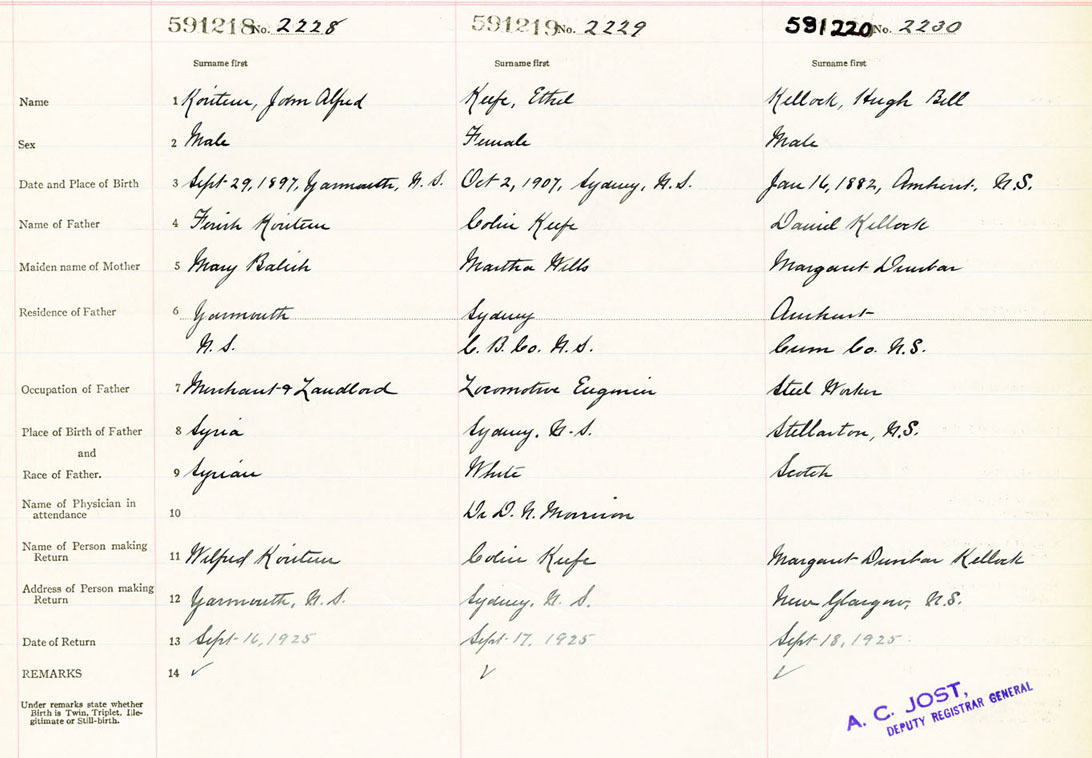 591218 No. 2228 591219 No. 2229 591220 No. 2230
Surname first Surname first Surname first
Name 1 John Alfred Keefe, Ethel Kellock, Hugh Bell
Sex 2 Male Female Male
Date and Place of Birth 3 Sept 29, 1897, Yarmouth, N.S. Oct 2, 1907, Sydney, N.S. Jan 16, 1882, Amherst, N.S.
Name of Father 4 Colin Keefe Daniel Kellock
Maiden name of Mother 5 Mary Martha Wills Margaret Dunbar
Residence of Father 6 Yarmouth Sydney Amherst
N.S. C.B. Co. N.S. Cum Co. N.S.
Occupation of Father 7 Merchant & Landlord Locomotive Engineer Steel Worker
Place of Birth of Father 8 Syria Sydney, N.S. Stellarton, N.S.
and
Race of Father. 9 Syrian White Scotch
Name of Physician in
attendance 10 Dr D. N. Morrison
Name of Person making
Return 11 Wilfred Colin Keefe Margaret Dunbar Kellock
Address of Person making
Return 12 Yarmouth, N.S. Sydney, N.S. New Glasgow, N.S.
Date of Return 13 Sept 16, 1925 Sept 17, 1925 Sept 18, 1925
REMARKS 14 ✓ ✓ ✓
Under remarks state whether
Birth is Twin, Triplet, Ille-
gitimate or Still-birth.
A. C. JOST,
DEPUTY REGISTRAR GENERAL